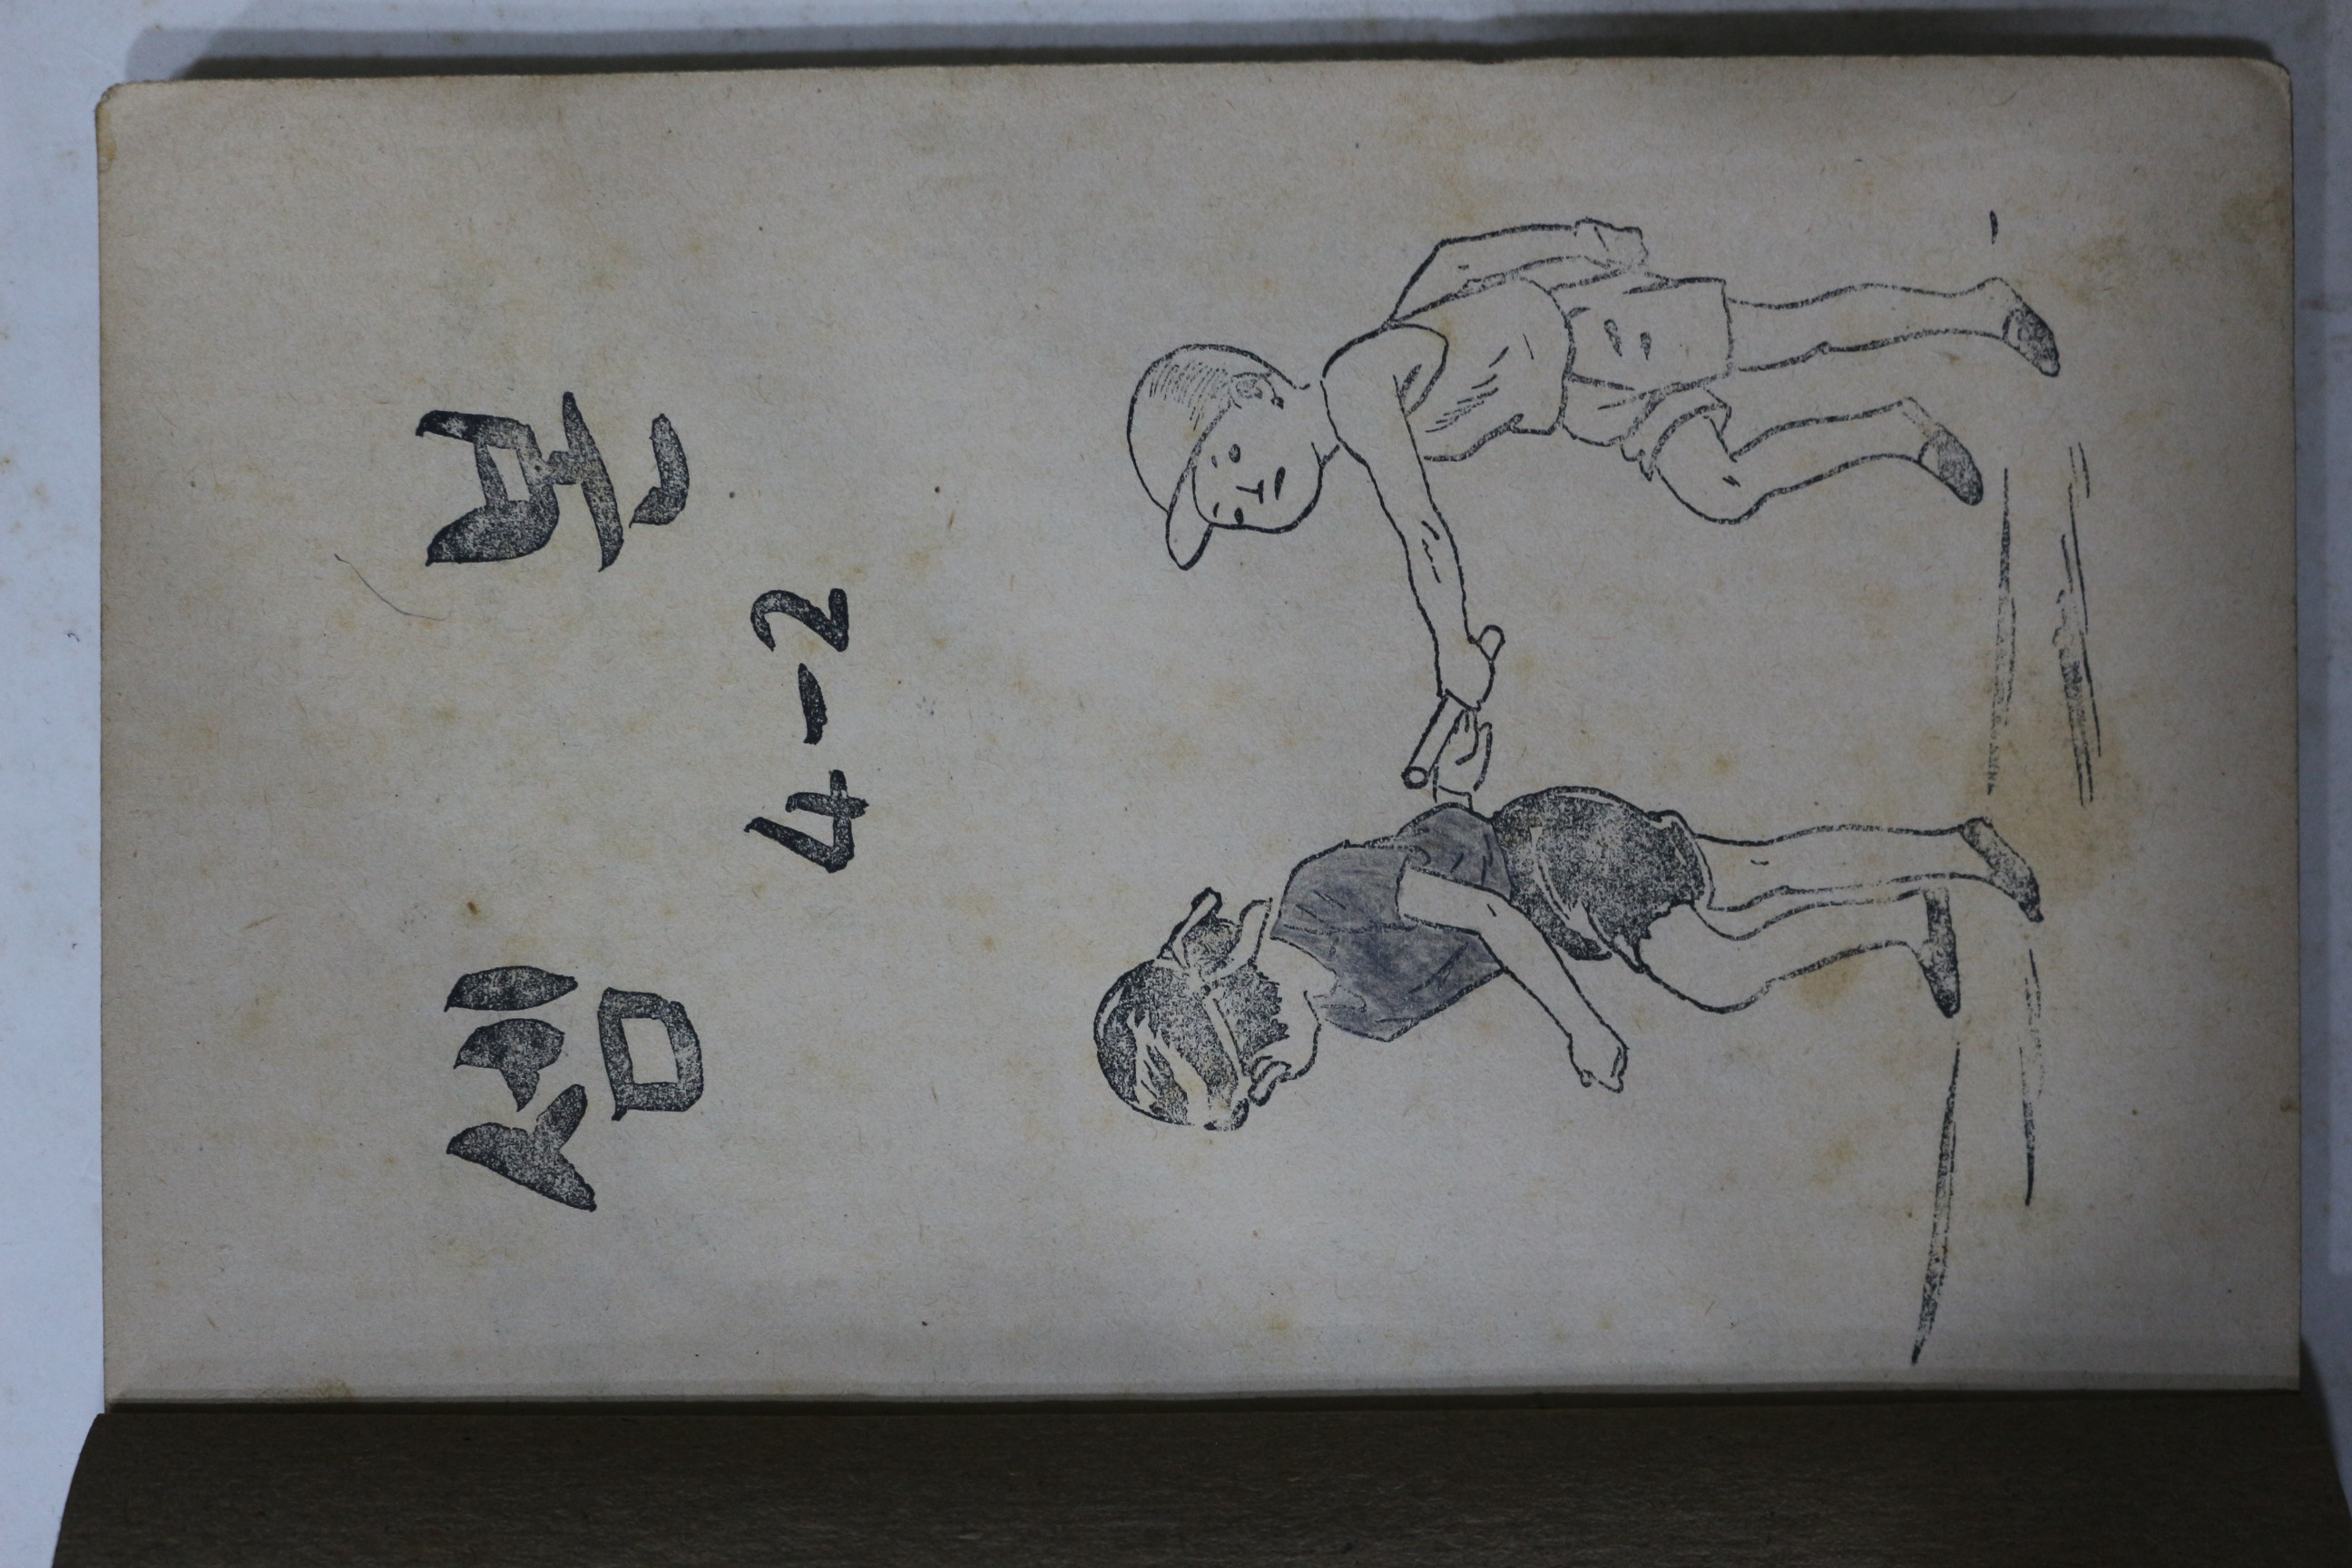 셈 본
4-2